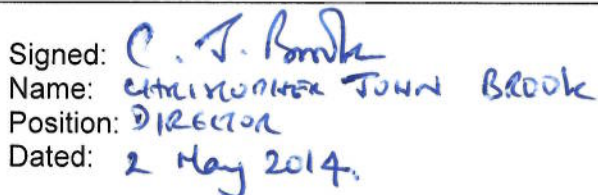 Signed: C. J. Brook
Name: CHRISTOPHER JOHN BROOK
Position: DIRECTOR
Dated: 2 May 2014.